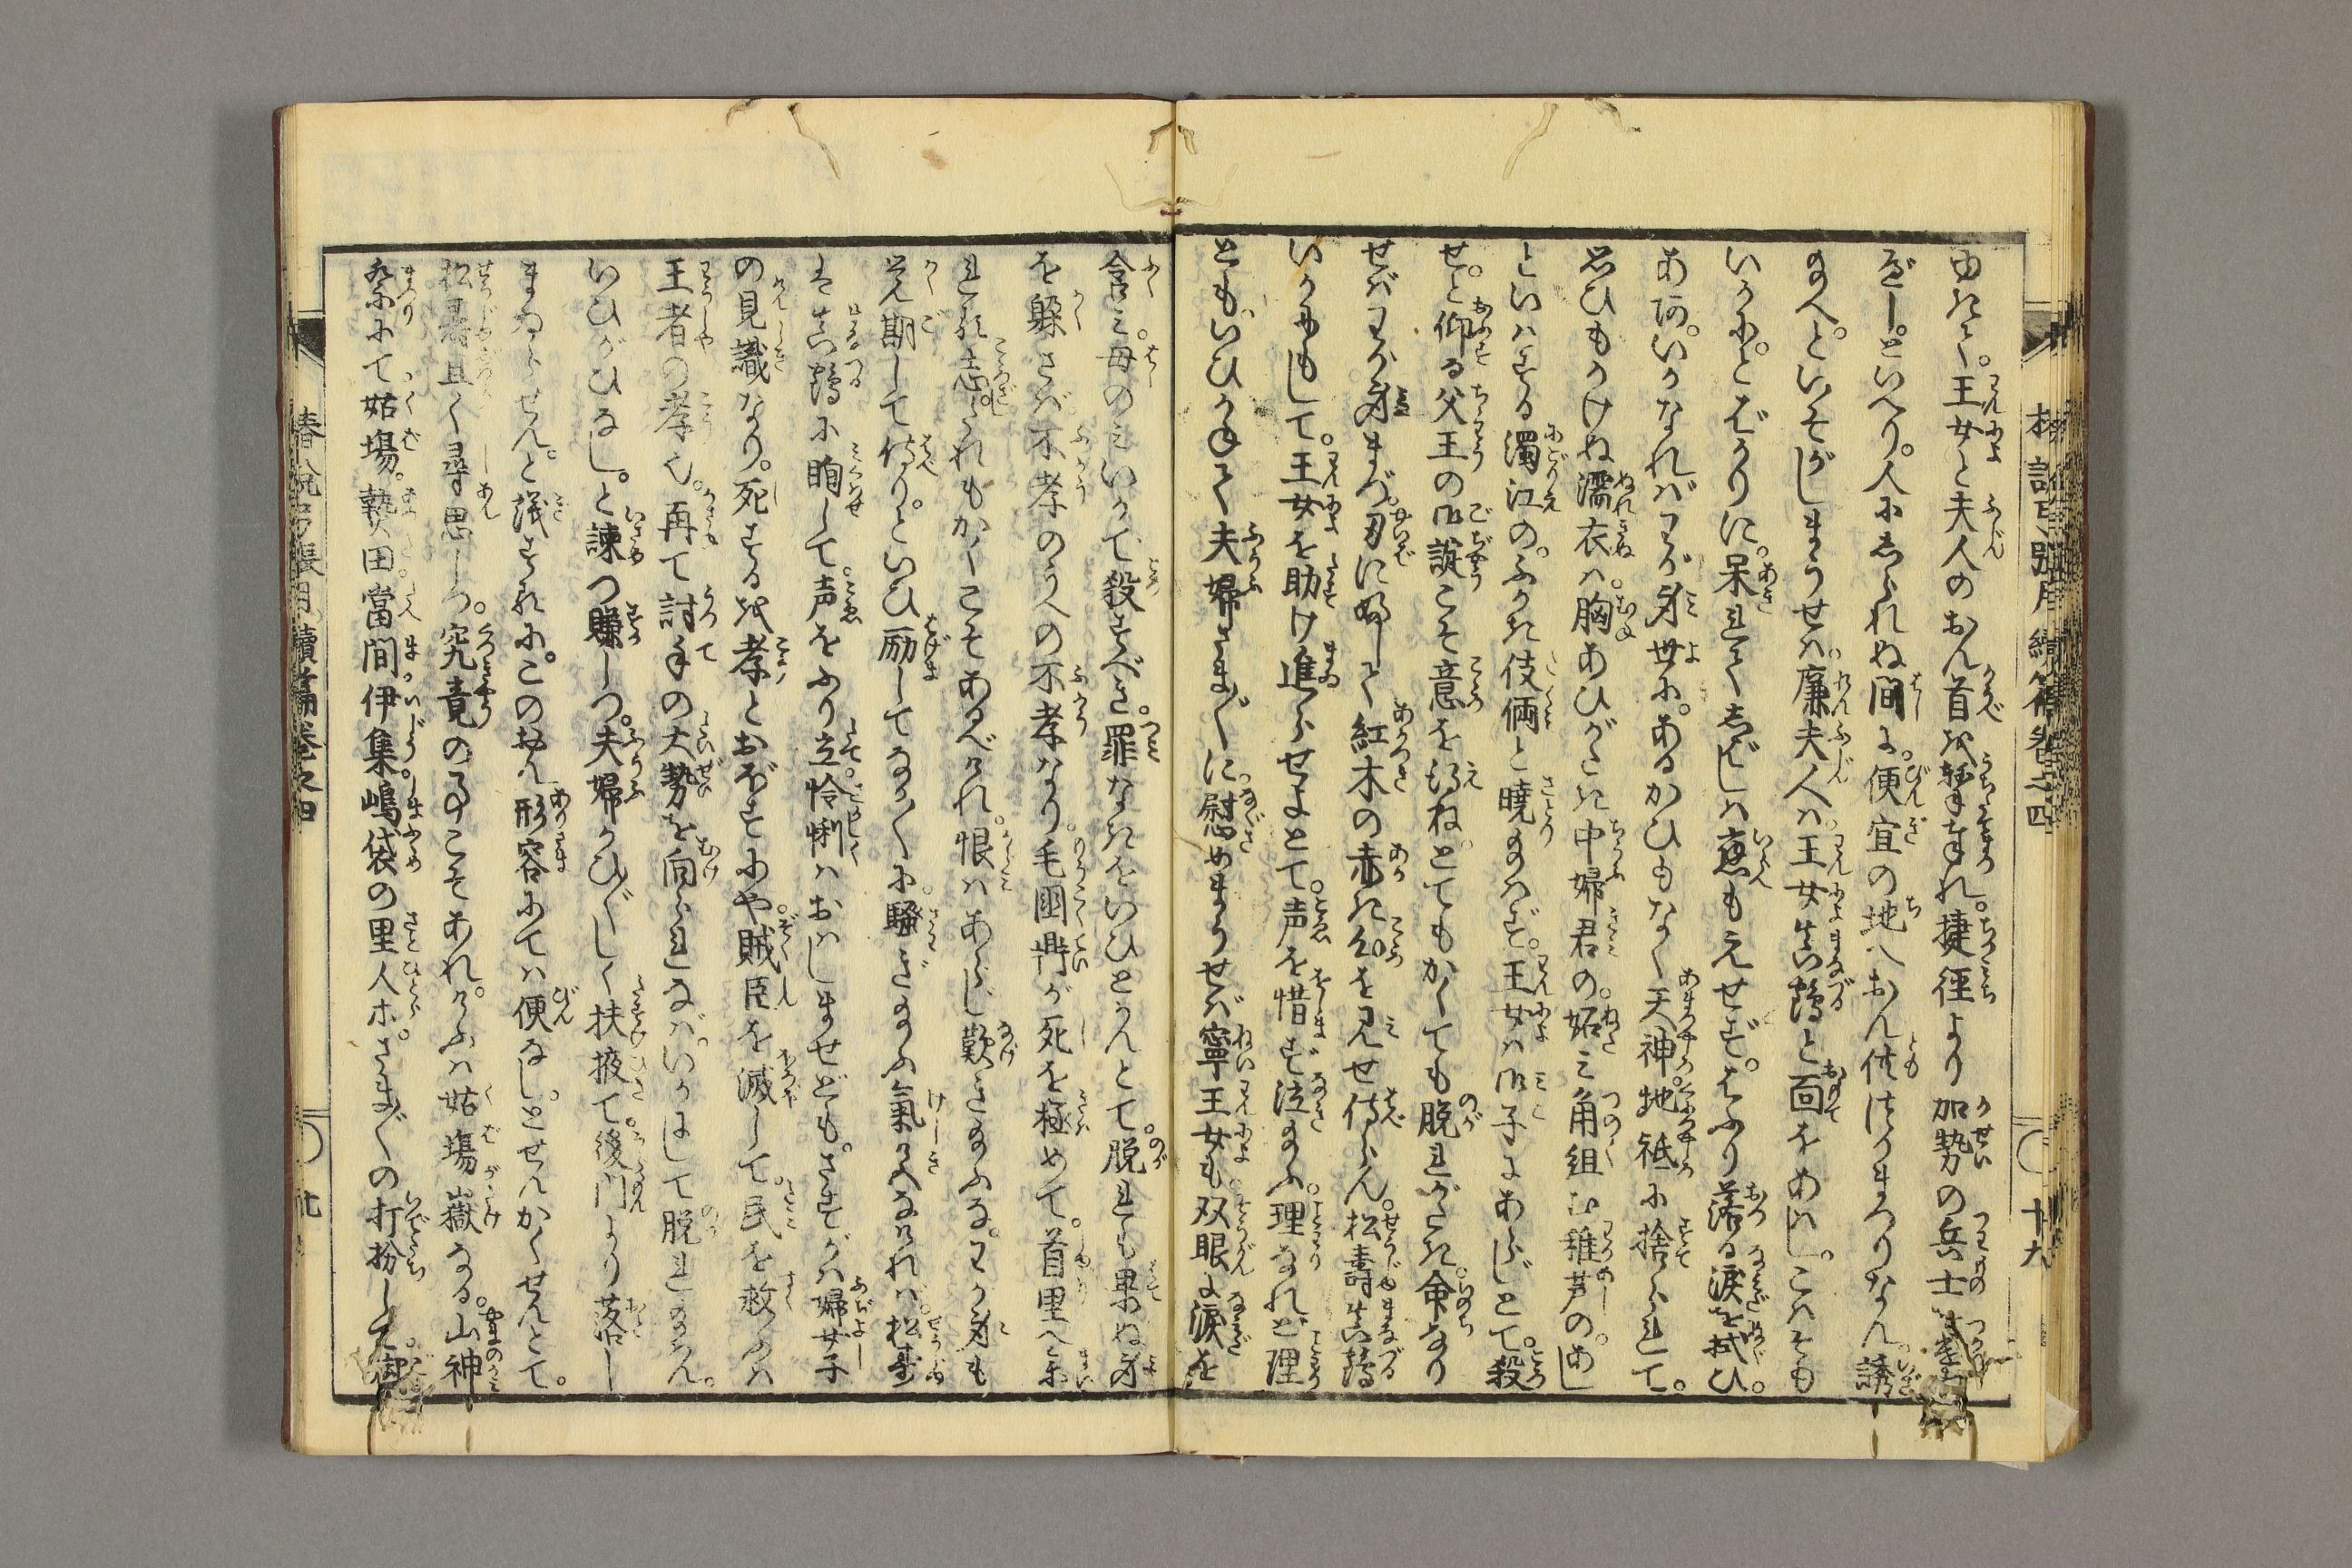 由なく。王女と夫人のおん首を撃奉れ。捷径より加勢の兵士
ぞ。といへり。人にしられぬ間に。便宜の地へおん供つかまつりなん。誘
給へ。といそがしまうせバ。廉夫人ハ。王女真鶴と面をあはし。こハそも
いかに。とばかりに。呆れてしばし應もえせず。はふり落る涙を拭ひ。
あな。いかなれバわが身世に。あるかひもなく天神地祇に捨られて。
思ひもかけぬ濡衣ハ。胸あひがたき中婦君の。妬み角組む稚芦の。あし
といハする濁江の。ふかき伎倆と暁り給ハず。王女ハ御子にあらずとて。殺
せ。と仰る父王の御諚こそ意を得ね。とてもかくても脱れがたき。命なり
せバわが身まづ。刃に伏して紅木の赤き心を見せ侍らん。松壽真鶴
いかにもして。王女を助け進らせよとて。声を惜まず泣給ふ。理なれど理
とも。いひかねて夫婦さま〴〵に。慰めまうせバ寧王女も。双眼に涙を
含み。母のみいかで殺すべき。罪なきをいひとかんとて。脱れも果ぬ身
を躱さバ不孝のうへの不孝なり。毛國鼎が死を極めて。首里へ参
れる志。われもかくこそあるべけれ。恨ハあらじ歎き給ふな。わが身も
覚期して侍り。といひ励してなか〳〵に。騒ぎ給ふ氣色なけれバ。松壽
ハ真鶴に眴して。声をふり立。怜悧ハおはしませども。さすがハ婦女子
の見識なり。死するを孝とおぼすにや。賊臣を滅して。民を救ふハ
王者の孝也。再て討手の大勢を向られなバ。いかにして脱れ給はん。
いひがひなし。と諫つ賺しつ。夫婦かひ〴〵しく扶掖て。後門より落し
まゐらせん。と議すれに。このおん形容にてハ便なし。とせんかくせんとて。
松壽且く尋思しつ。究竟の事こそあれ。けふハ姑場嶽なる。山神
祭にて姑場。贄田當間伊集。嶋袋の里人ホ。さま〴〵の打扮して
椿説弓張月續篇巻之四
十九
廿